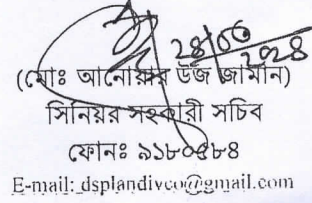 ২৪/০৬/২০২৪
(মোঃ আনোয়ার উজ জামান)
সিনিয়র সহকারী সচিব
ফোনঃ ৯১৮০৫৮৪
E-mail: dsplandivco@gmail.com